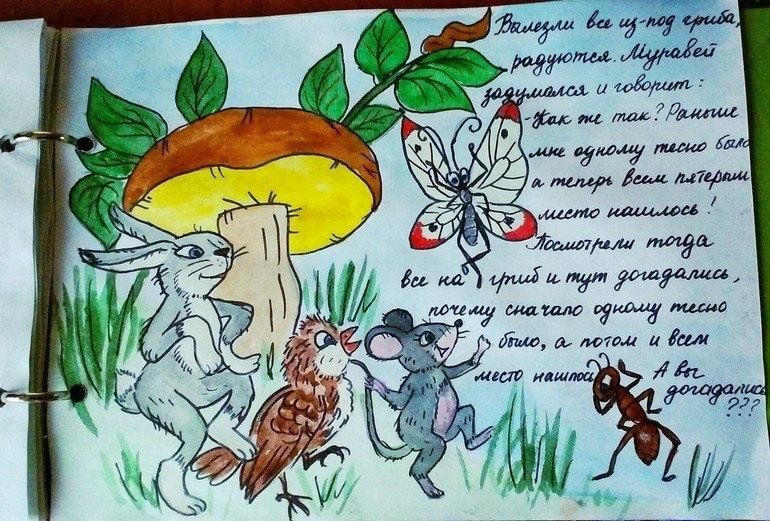 Вылезли все из-под гриба,
радуются. Муравей
задумался и говорит:
-Как же так? Раньше
мне одному тесно было
а теперь всем пятерым
место нашлось!
Посмотрели тогда
все на гриб и тут догадались,
почему сначало одному тесно
было, а потом и всем
место нашлось А вы
догадались
???